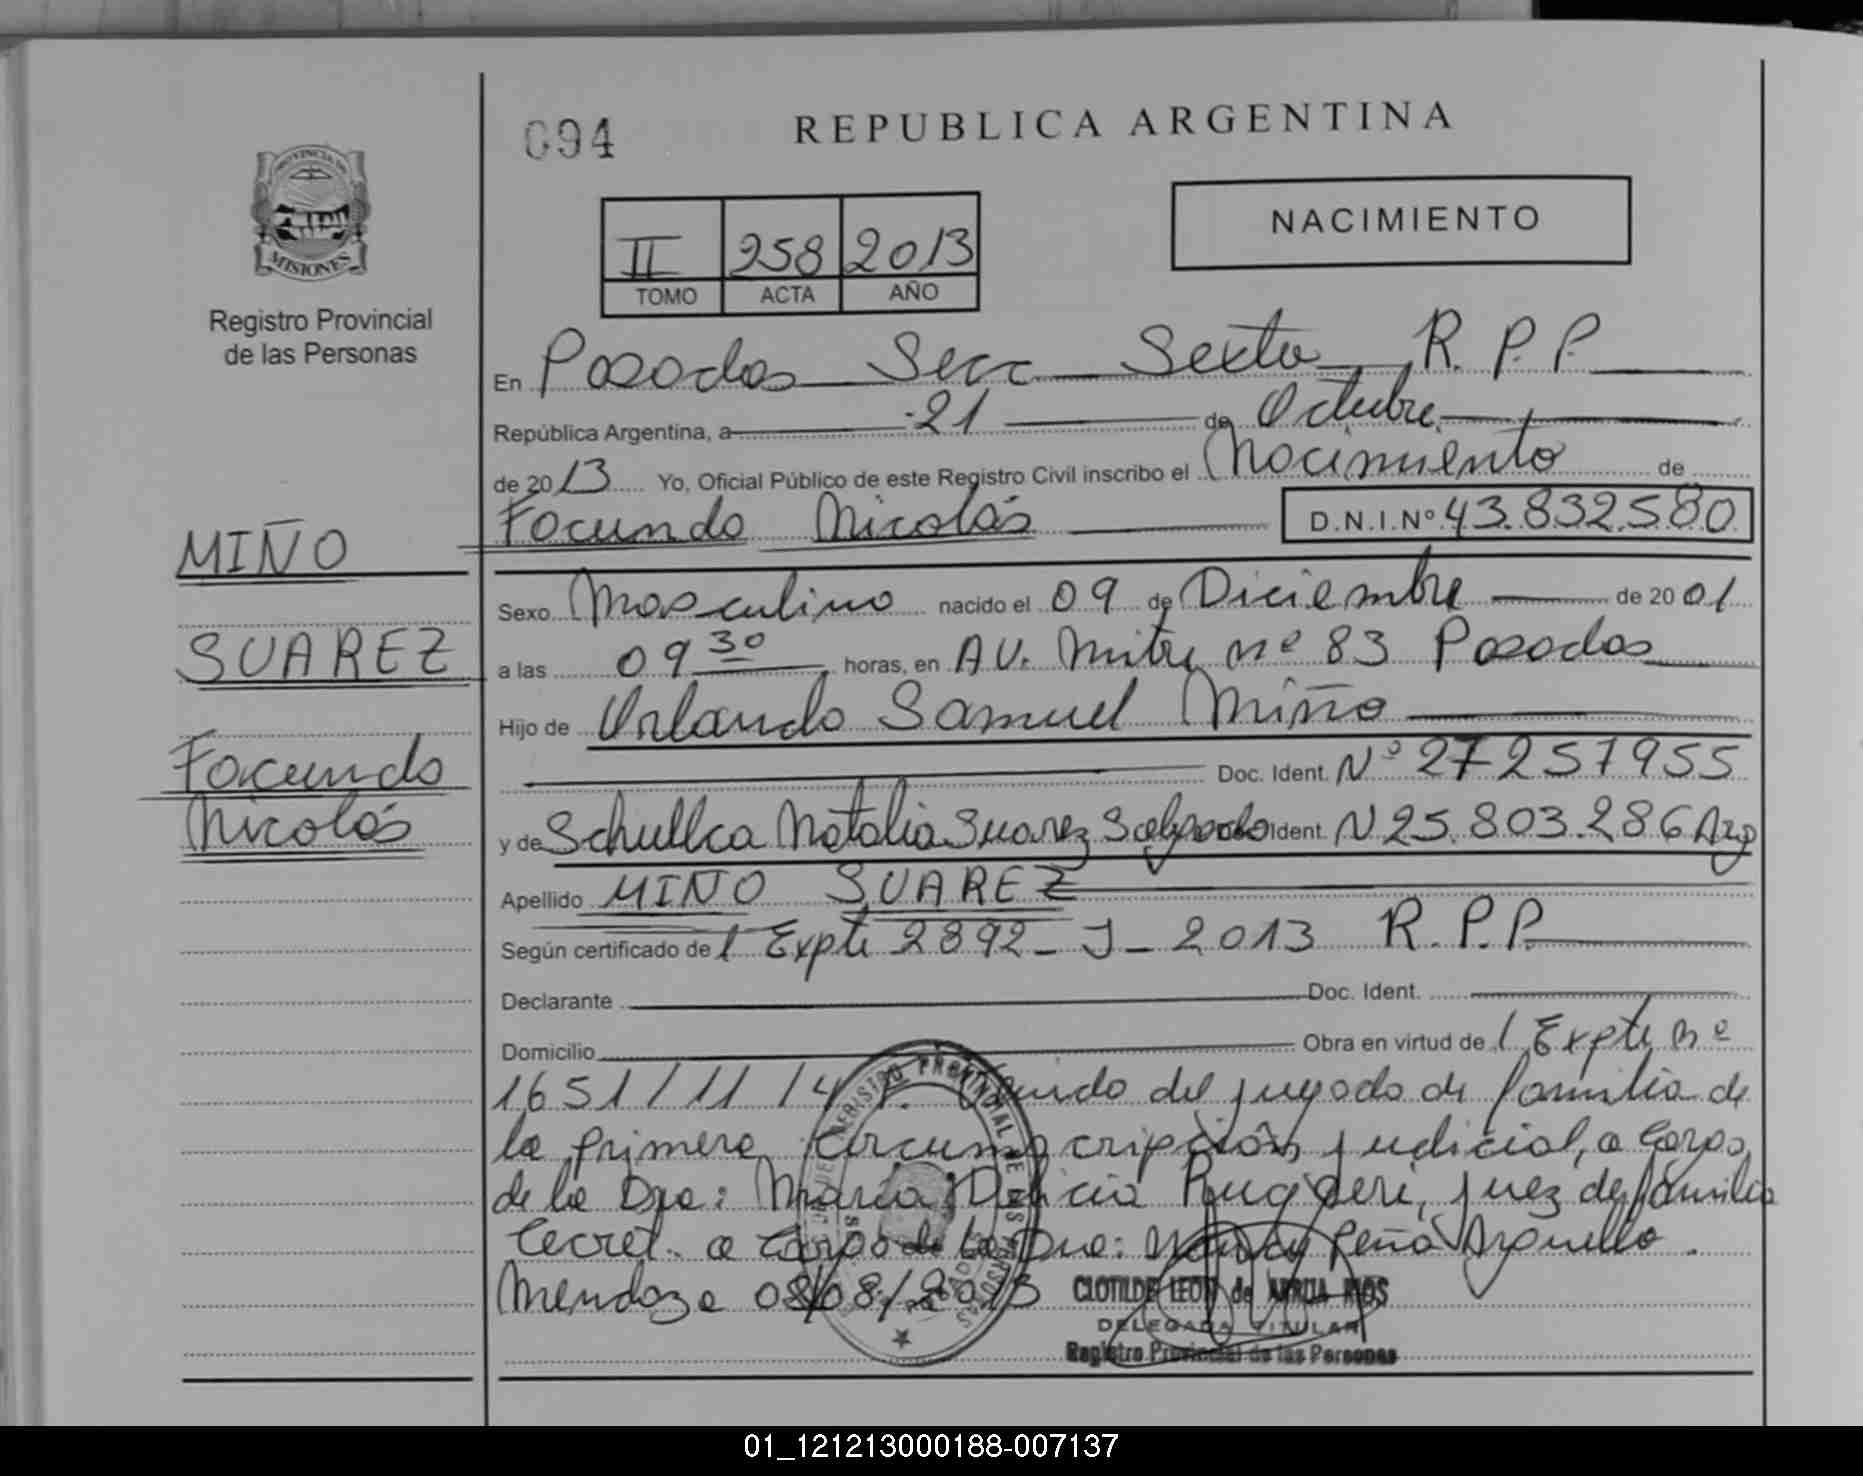 094
REPUBLICA ARGENTINA
PROVINCIA DE
MISIONES
Registro Provincial
de las Personas
II 258 2013
TOMO ACTA AÑO
NACIMIENTO
En Posadas Secc Sexta R.P.P.
República Argentina, a 21 de Octubre
de 2013 Yo, Oficial Público de este Registro Civil inscribo el Nacimiento de
Facundo Nicolás D.N.I.Nº 43.832.580
MIÑO
SUAREZ
Facundo
Nicolás
Sexo Masculino nacido el 09 de Diciembre de 2001
a las 09 30 horas, en AV. Mitre nº 83 Posadas
Hijo de Orlando Samuel Miño
Doc. Ident. Nº 27257955
y de Schullca Natalia Suarez Salgado Ident. N 25.803.286 Arg
Apellido MIÑO SUAREZ
Según certificado de l Expte 2892-J-2013 R.P.P.
Declarante Doc. Ident.
Domicilio Obra en virtud de l Expte nº
1651/11/4 del juzgado de familia de
la primera circunscripción judicial, a cargo
de la Dra: María Delicia Ruggeri, juez de familia
Secret. a cargo de la Dra: Nancy Peña Arguello.
Mendoza 08/08/2013
REGISTRO PROVINCIAL DE LAS PERSONAS
CLOTILDE LEON de
DELEGADA TITULAR
Registro Provincial de las Personas
01_121213000188-007137